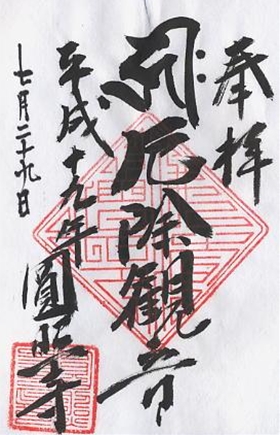 奉拝
厄除観音
平成十九年
圓照寺
七月二十九日